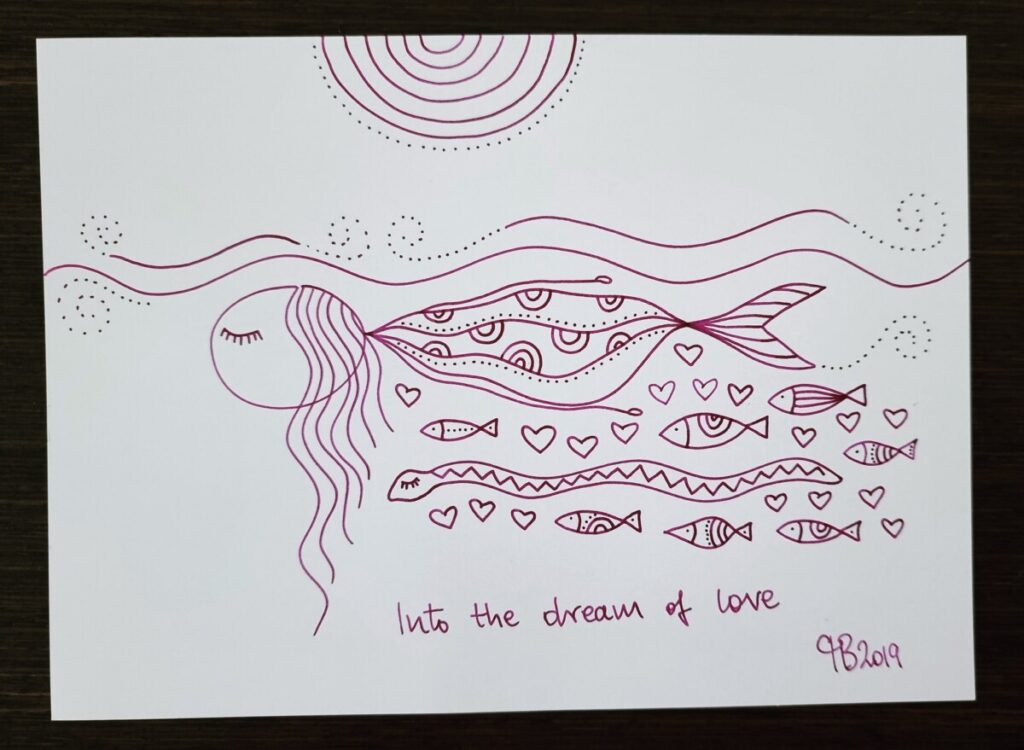 Into the dream of love
PB 2019